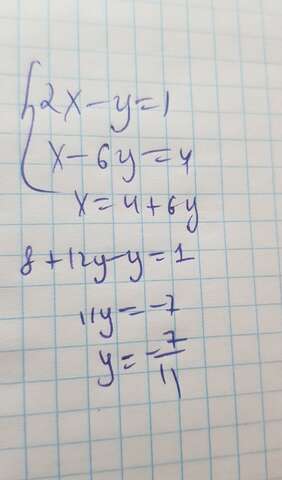 2x-y=1
x-6y=4
x=4+6y
8+12y-y=1
11y=-7
y=-7/11